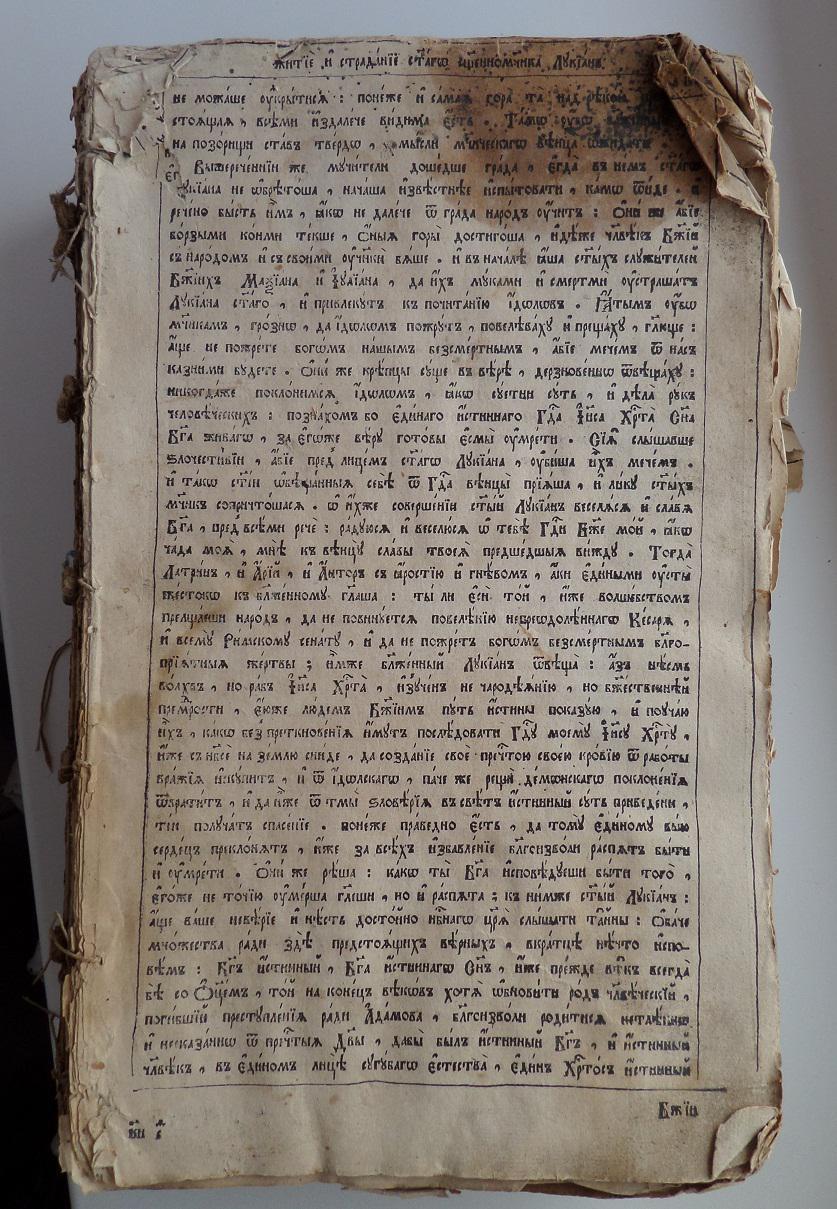 житїе и҆ страда́нїе ст҃а́гѡ сщ҃енномч҃нка Лꙋкїа́на.
не можа́ше ᲂу҆кры́тисѧ : поне́же и҆ сама́ѧ гора̀ та̀ над̾ рѣко́ю
стоѧ́щаѧ , всѣ́ми и҆здале́че ви́дима є҆́сть . Та́мѡ ᲂу҆́бѡ
на позо́рищи ста́въ тве́рдѡ , мч҃нческагѡ вѣнца̀ ѡ҆жида́ти
Вы́шерече́ннїи же мꙋчи́тели доше́дше гра́да , є҆гда̀ въ не́мъ ст҃а́гѡ
Лꙋкїа́на не ѡ҆брѣто́ша , нача́ша и҆звѣ́стнѣе и҆спы́товати , ка́мѡ ѿи́де . и҆
рече́но бы́сть и҆̀мъ , ꙗ҆́кѡ не дале́че ѿ гра́да наро́дъ ᲂу҆чи́тъ : Ѻ҆ни́ же а҆́бїе
бо́рзыми ко́нми те́кше , ѻ҆́ныѧ горы̀ дости́гоша , и҆дѣ́же чл҃вѣ́къ Бж҃їй
съ наро́домъ и҆ съ свои́ми ᲂу҆чн҃кѝ бѧ́ше . и҆ въ нача́лѣ ꙗ҆́ша ст҃ы́хъ слꙋжи́телей
Бж҃їихъ Маѯїа́на и҆ І҆ꙋлїа́на , да и҆̀хъ мꙋ́ками и҆ сме́ртми ᲂу҆страша́тъ
Лꙋкїа́на ст҃а́го , и҆ привлекꙋ́тъ къ почита́нїю і҆́дѡлѡвъ . Ꙗ҆́тымъ ᲂу҆́бѡ
мч҃нкамъ , гро́знѡ , да і҆́дѡлѡмъ пожрꙋ́тъ , повелѣва́хꙋ и҆ преща́хꙋ , гл҃юще :
а҆́ще не пожре́те богѡ́мъ на́шымъ безсме́ртнымъ , а҆́бїе мече́мъ ѿ на́съ
казни́ми бꙋ́дете . Ѻ҆ни́ же крѣ́пцы сꙋ́ще въ вѣ́рѣ , дерзнове́ннѡ ѿвѣща́хꙋ :
никогда́же поклони́мсѧ і҆́дѡлѡмъ , ꙗ҆́кѡ сꙋ́етни сꙋ́ть , и҆ дѣ́ла рꙋ́къ
человѣ́ческихъ : позна́хомъ бо є҆ди́наго и҆́стиннаго Гд҇а І҆и҃са Хрт҇а̀ Сн҃а
Бг҃а жива́гѡ , за є҆гѡ́же вѣ́рꙋ гото́вы є҆смы̀ ᲂу҆мре́ти . Сїѧ̑ слы́шавше
ѕлочести́вїи , а҆́бїе пред̾ лице́мъ ст҃а́гѡ Лꙋкїа́на , ᲂу҆би́ша и҆̀хъ мече́мъ .
и҆ та́кѡ ст҃і́и ѡ҆бѣща̑нныѧ себѣ̀ ѿ Гд҇а вѣнцы̀ прїѧ́ша , и҆ ли́кꙋ ст҃ы́хъ
мч҃нкъ сопричто́шасѧ . ѡ҆ ни́хже соверше́нїи ст҃ы́й Лꙋкїа́нъ веселѧ́сѧ и҆ сла́вѧ
Бг҃а , пред̾ всѣ́ми речѐ : ра́дꙋюсѧ и҆ веселю́сѧ ѡ҆ тебѣ̀ Гд҇и Бж҃е мо́й , ꙗ҆́кѡ
ча̑да моѧ̑ , мнѣ̀ къ вѣнцꙋ̀ сла́вы твоеѧ̀ предше́дшыѧ ви́ждꙋ . Тогда̀
Латрі́нъ , и҆ А҆рі́й , и҆ А҆нто́ръ съ ꙗ҆́ростїю и҆ гнѣ́вомъ , а҆́ки є҆ди́ными ᲂу҆сты̀
же́стокѡ къ бл҃же́нномꙋ гл҃аша : ты́ ли є҆сѝ то́й , и҆́же волшебство́мъ
прелща́еши наро́дъ , да не повинꙋ́етсѧ повелѣ́нїю непреѡдолѣ́ннагѡ Ке́сарѧ ,
и҆ всемꙋ̀ Ри́мскомꙋ сена́тꙋ , и҆ да не пожре́тъ богѡ́мъ безсме́ртнымъ бл҃го-
прїѧ̑тныѧ же́ртвы ; и҆̀мже бл҃же́нный Лꙋкїа́нъ ѿвѣща̀ : а҆́зъ нѣ́смь
во́лхвъ , но ра́бъ І҆и҃са Хрт҇а̀ , и҆зꙋ́ченъ не чародѣѧ́нїю , но бж҃е́ственнѣй
премⷣрости , є҆́юже лю́демъ Бж҃їимъ пꙋ́ть и҆́стины показꙋ́ю , и҆ поꙋча́ю
и҆̀хъ , ка́кѡ без̾ преткнове́нїѧ и҆́мꙋтъ послѣ́довати Гд҇ꙋ моемꙋ̀ І҆и҃сꙋ Хрт҇ꙋ̀ ,
и҆́же съ нб҃сѐ на зе́млю сни́де , да созда́нїе своѐ пречⷭ҇тою свое́ю кро́вїю ѿ рабо́ты
вра́жїѧ и҆скꙋ́питъ , и҆ ѿ і҆́дѡлскагѡ , па́че же рещѝ де́мѡнскагѡ поклоне́нїѧ
ѿврати́тъ , и҆ да и҆̀же ѿ тмы̀ ѕловѣ́рїѧ въ свѣ́тъ и҆́стинный сꙋ́ть приведе́ни ,
ті́и полꙋча́тъ спасе́нїе . поне́же пра́ведно є҆́сть , да томꙋ̀ є҆ди́номꙋ вы́ю
серде́цъ преклонѧ́тъ , и҆́же за всѣ́хъ и҆збавле́нїе бл҃гоизво́ли распѧ́тъ бы́ти
и҆ ᲂу҆мре́ти . Ѻ҆ни́ же рѣ́ша : ка́кѡ ты̀ Бг҃а и҆сповѣ́дꙋеши бы́ти того̀ ,
є҆го́же не то́чїю ᲂу҆ме́рша гл҃еши , но и҆ распѧ́та ; къ ни̑мже ст҃ы́й Лꙋкїа́нъ :
а҆́ще ва́ше невѣ́рїе и҆ нѣ́сть досто́йно нбⷭ҇нагѡ цр҃ѧ̀ слы́шати та̑йны : ѻ҆ба́че
мно́жества ра́ди здѣ̀ предстоѧ́щихъ вѣ́рныхъ , вкра́тцѣ нѣ́что и҆спо-
вѣ́мъ : Бг҃ъ и҆́стинный , Бг҃а и҆́стиннагѡ Сн҃ъ , и҆́же пре́жде вѣ̑къ всегда̀
бѣ̀ со Ѻ҆ц҃е́мъ , то́й на коне́цъ вѣкѡ́въ хотѧ̀ ѡ҆бнови́ти ро́дъ чл҃вѣ́ческїй ,
поги́бшїй престꙋпле́нїѧ ра́ди А҆да́мова , бл҃гоизво́ли роди́тисѧ нетлѣ́ннѡ
и҆ несказа́ннѡ ѿ прⷱ҇тыѧ Дв҃ы , дабы̀ бы́лъ и҆́стинный Бг҃ъ , и҆ и҆́стинный
чл҃вѣ́къ , въ є҆ди́номъ лицѣ̀ сꙋгꙋ́багѡ є҆стества̀ , є҆ди́нъ Хрⷭ҇то́съ и҆́стинный
Бж҃їи